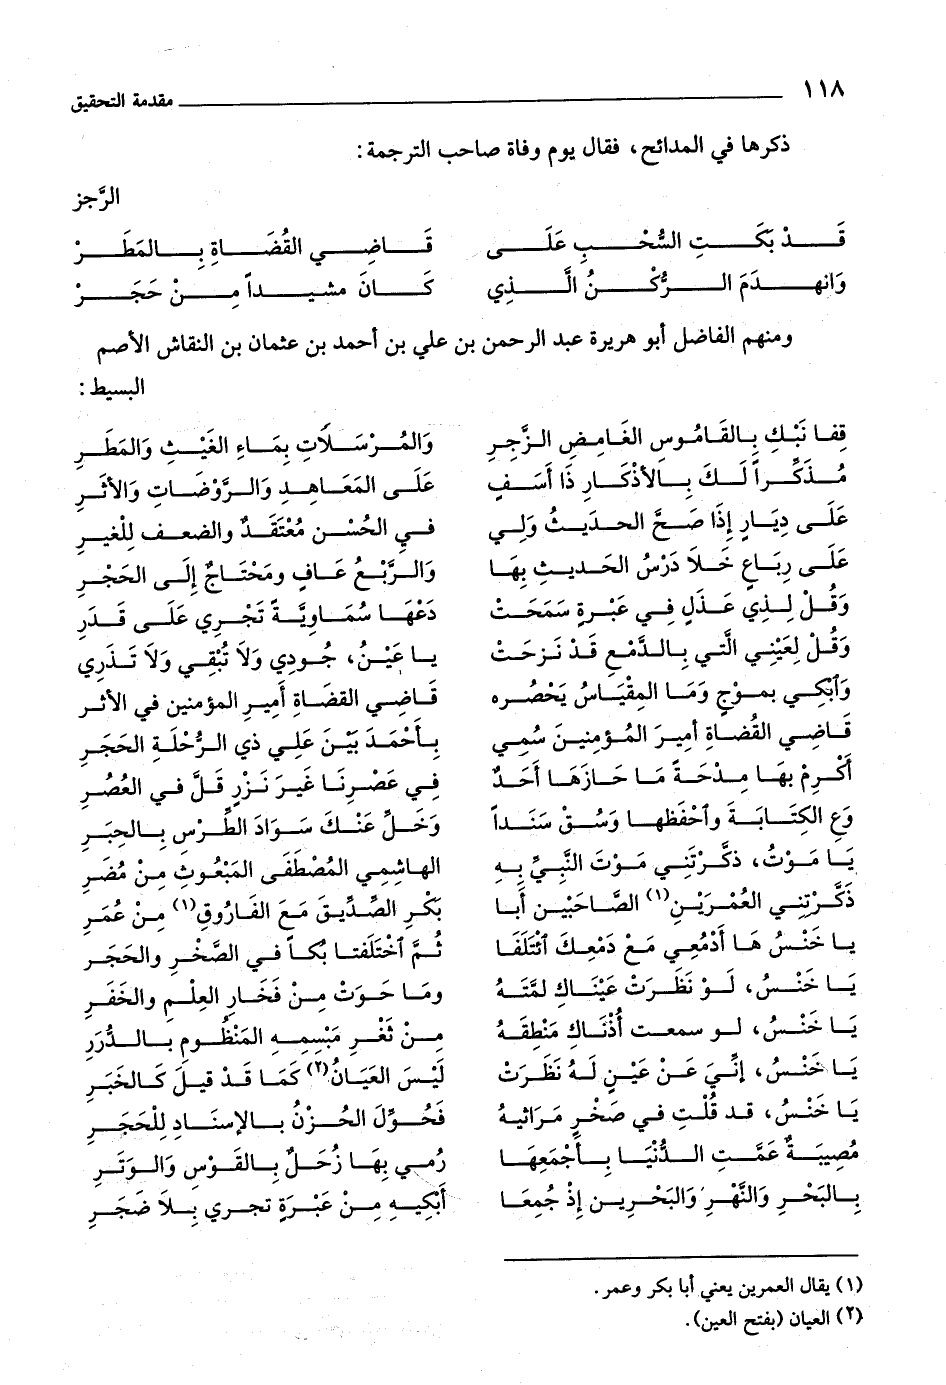 ١١٨ مقدمة التحقيق
ذكرها في المدائح، فقال يوم وفاة صاحب الترجمة:
الرَّجز
قَدْ بَكَتِ السُّحْبِ عَلَى قَاضِي القُضَاةِ بِالمَطَرْ
وَانهدَمَ الرُّكْنُ الَّذِي كَانَ مشيداً مِنْ حَجَرْ
ومنهم الفاضل أبو هريرة عبد الرحمن بن علي بن أحمد بن عثمان بن النقاش الأصم
البسيط:
قِفا نَبْكِ بِالقَامُوسِ الغَامِضِ الزَّجِرِ وَالمُرْسَلَاتِ بِمَاءِ الغَيْثِ وَالمَطَرِ
مُذَكِّراً لَكَ بِالأَذْكَارِ ذَا أَسَفٍ عَلَى المَعَاهِدِ وَالرَّوْضَاتِ وَالأثَرِ
عَلَى دِيَارٍ إِذَا صَحَّ الحَدِيثُ وَلِي فِي الحُسْنِ مُعْتَقَدٌ والضعف لِلْغيرِ
عَلَى رِبَاعٍ خَلَا دَرْسُ الحَدِيثِ بِهَا وَالرَّبْعُ عَافٍ ومَحْتَاجٌ إِلَى الحَجْرِ
وَقُلْ لِذِي عَذَلٍ فِي عَبْرةٍ سَمَحَتْ دَعْهَا سُمَاوِيَّةً تَجْرِي عَلَى قَدَرِ
وَقُلْ لِعَيْنِي الَّتِي بِالدَّمْعِ قَدْ نَزَحَتْ يا عَيْنُ، جُودِي وَلَا تُبْقِي وَلَا تَذَرِي
وَٱبْكِي بموْجٍ وَمَا المِقْيَاسُ يَحْصُره قَاضِي القضَاةِ أَمِيرِ المؤمنين في الأثر
قَاضِي القُضَاةِ أَمِيرَ المُؤمِنِينَ سُمِي بِأَحْمَدَ بَيْنَ عَلِي ذي الرُّحْلَةِ الحَجَرِ
أَكْرِمْ بِهَا مِدْحَةً مَا حَازَهَا أَحَدٌ فِي عَصْرِنَا غَيرَ نَزْرٍ قَلَّ في العُصُرِ
وَعِ الكِتَابَةَ وٱحْفَظها وَسُقْ سَنَداً وَخَلِّ عَنْكَ سَوَادَ الطِّرْسِ بِالحِبَرِ
يَا مَوْتُ، ذكَّرْتَنِي مَوْتَ النَّبِيِّ بِهِ الهاشِمِي المُصْطَفَى المَبْعُوثِ مِنْ مُضَرِ
ذَكَّرْتنِي العُمْرَيْنِ(١) الصَّاحبَيْنِ أَبا بَكْرِ الصِّدِّيقَ مَعَ الفَارُوقِ(١) مِنْ عُمَرِ
يا خَنْسُ هَا أَدْمُعِي مَعْ دَمْعِكَ ٱئْتَلَفَا ثُمَّ ٱخْتَلَفتا بُكاً في الصَّخْرِ والحَجَرِ
يَا خَنْسُ، لَوْ نَظَرَتْ عَيْنَاكِ لمَّتَهُ ومَا حَوَتْ مِنْ فَخَارِ العِلْمِ والخَفَرِ
يَا خَنْسُ، لو سمعت أُذْنَاكِ مَنْطِقَهُ مِنْ ثَغْرِ مَبْسِمِهِ المَنْظُومِ بِالدُّرَرِ
يَا خَنْسُ، إِنِّيَ عَنْ عَيْنٍ لَهُ نَظَرَتْ لَيْسَ العَيَانُ(٢) كَمَا قَدْ قِيلَ كَالخَبَرِ
يَا خَنْسُ، قد قُلْتِ في صَخْرٍ مَرَاثِيهُ فَحُوِّلَ الحُزْنُ بِالإِسْنَادِ لِلْحَجَرِ
مُصِيبَةٌ عَمَّتِ الدُّنْيَا بِأَجْمَعِهَا رُمِي بِهَا زُحَلٌ بِالقَوْسِ وَالوَتَرِ
بِالبَحْرِ وَالنَّهْرِ وَالبَحْرِينِ إِذْ جُمِعَا أَبْكِيهِ مِنْ عَبْرَةٍ تجري بِلَا ضَجَرِ
(١) يقال العمرين يعني أبا بكر وعمر.
(٢) العيان (بفتح العين).